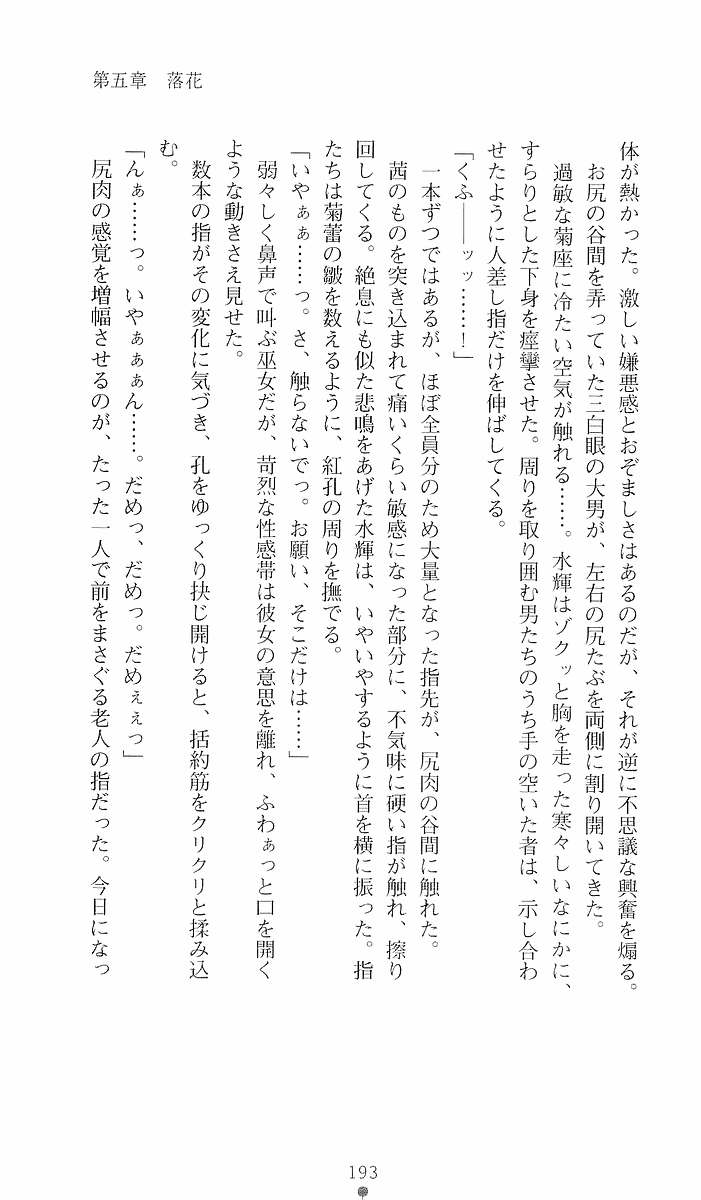 第五章　落花
体が熱かった。激しい嫌悪感とおぞましさはあるのだが、それが逆に不思議な興奮を煽る。
　お尻の谷間を弄っていた三白眼の大男が、左右の尻たぶを両側に割り開いてきた。
　過敏な菊座に冷たい空気が触れる……。水輝はゾクッと胸を走った寒々しいなにかに、
すらりとした下身を痙攣させた。周りを取り囲む男たちのうち手の空いた者は、示し合わ
せたように人差し指だけを伸ばしてくる。
「くふ――ッッ……！」
　一本ずつではあるが、ほぼ全員分のため大量となった指先が、尻肉の谷間に触れた。
　茜のものを突き込まれて痛いくらい敏感になった部分に、不気味に硬い指が触れ、擦り
回してくる。絶息にも似た悲鳴をあげた水輝は、いやいやするように首を横に振った。指
たちは菊蕾の皺を数えるように、紅孔の周りを撫でる。
「いやぁぁ……っ。さ、触らないでっ。お願い、そこだけは……」
　弱々しく鼻声で叫ぶ巫女だが、苛烈な性感帯は彼女の意思を離れ、ふわぁっと口を開く
ような動きさえ見せた。
　数本の指がその変化に気づき、孔をゆっくり抉じ開けると、括約筋をクリクリと揉み込
む。
「んぁ……っ。いやぁぁぁん……。だめっ、だめっ。だめぇぇっ」
　尻肉の感覚を増幅させるのが、たった一人で前をまさぐる老人の指だった。今日になっ
193